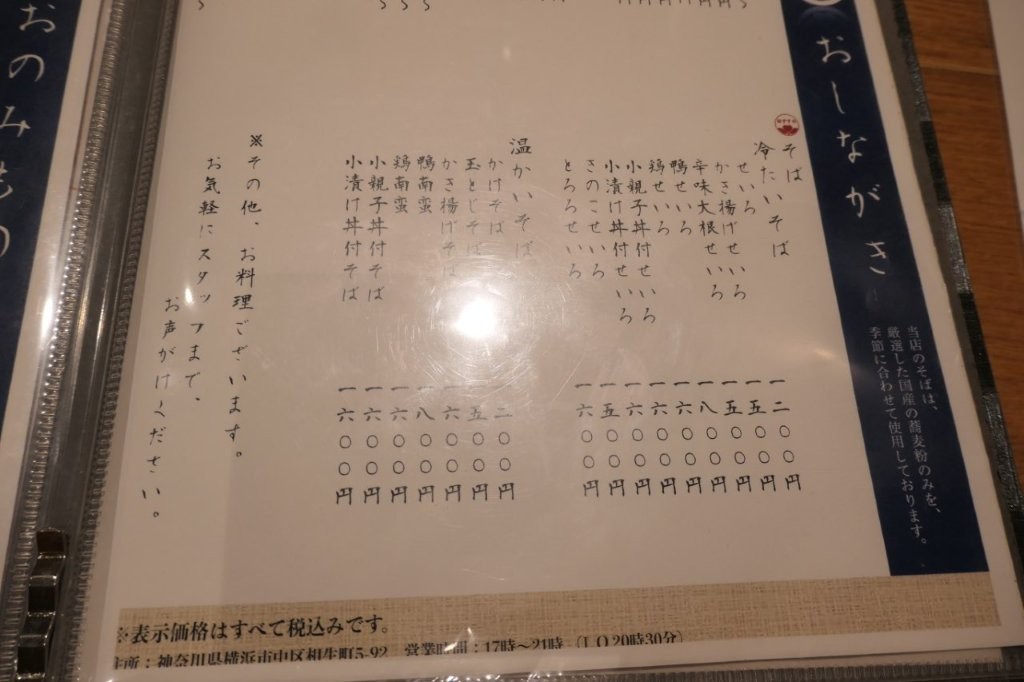 おしながき
当店のそばは、
厳選した国産の蕎麦粉のみを、
季節に合わせて使用しております。
そば
冷たいそば
せいろ 一二〇〇円
かき揚げせいろ 一五〇〇円
辛味大根せいろ 一五〇〇円
鴨せいろ 一八〇〇円
鶏せいろ 一六〇〇円
小親子丼付せいろ 一六〇〇円
小漬け丼付せいろ 一六〇〇円
きのこせいろ 一五〇〇円
とろろせいろ 一六〇〇円
温かいそば
かけそば 一二〇〇円
玉とじそば 一五〇〇円
かき揚げそば 一六〇〇円
鴨南蛮 一八〇〇円
鶏南蛮 一六〇〇円
小親子丼付そば 一六〇〇円
小漬け丼付そば 一六〇〇円
※その他、お料理ございます。
お気軽にスタッフまで、
お声がけください。
※表示価格はすべて税込みです。
住所:神奈川県横浜市中区相生町5-92 営業時間:17時〜21時(LO20時30分)
おのみもの